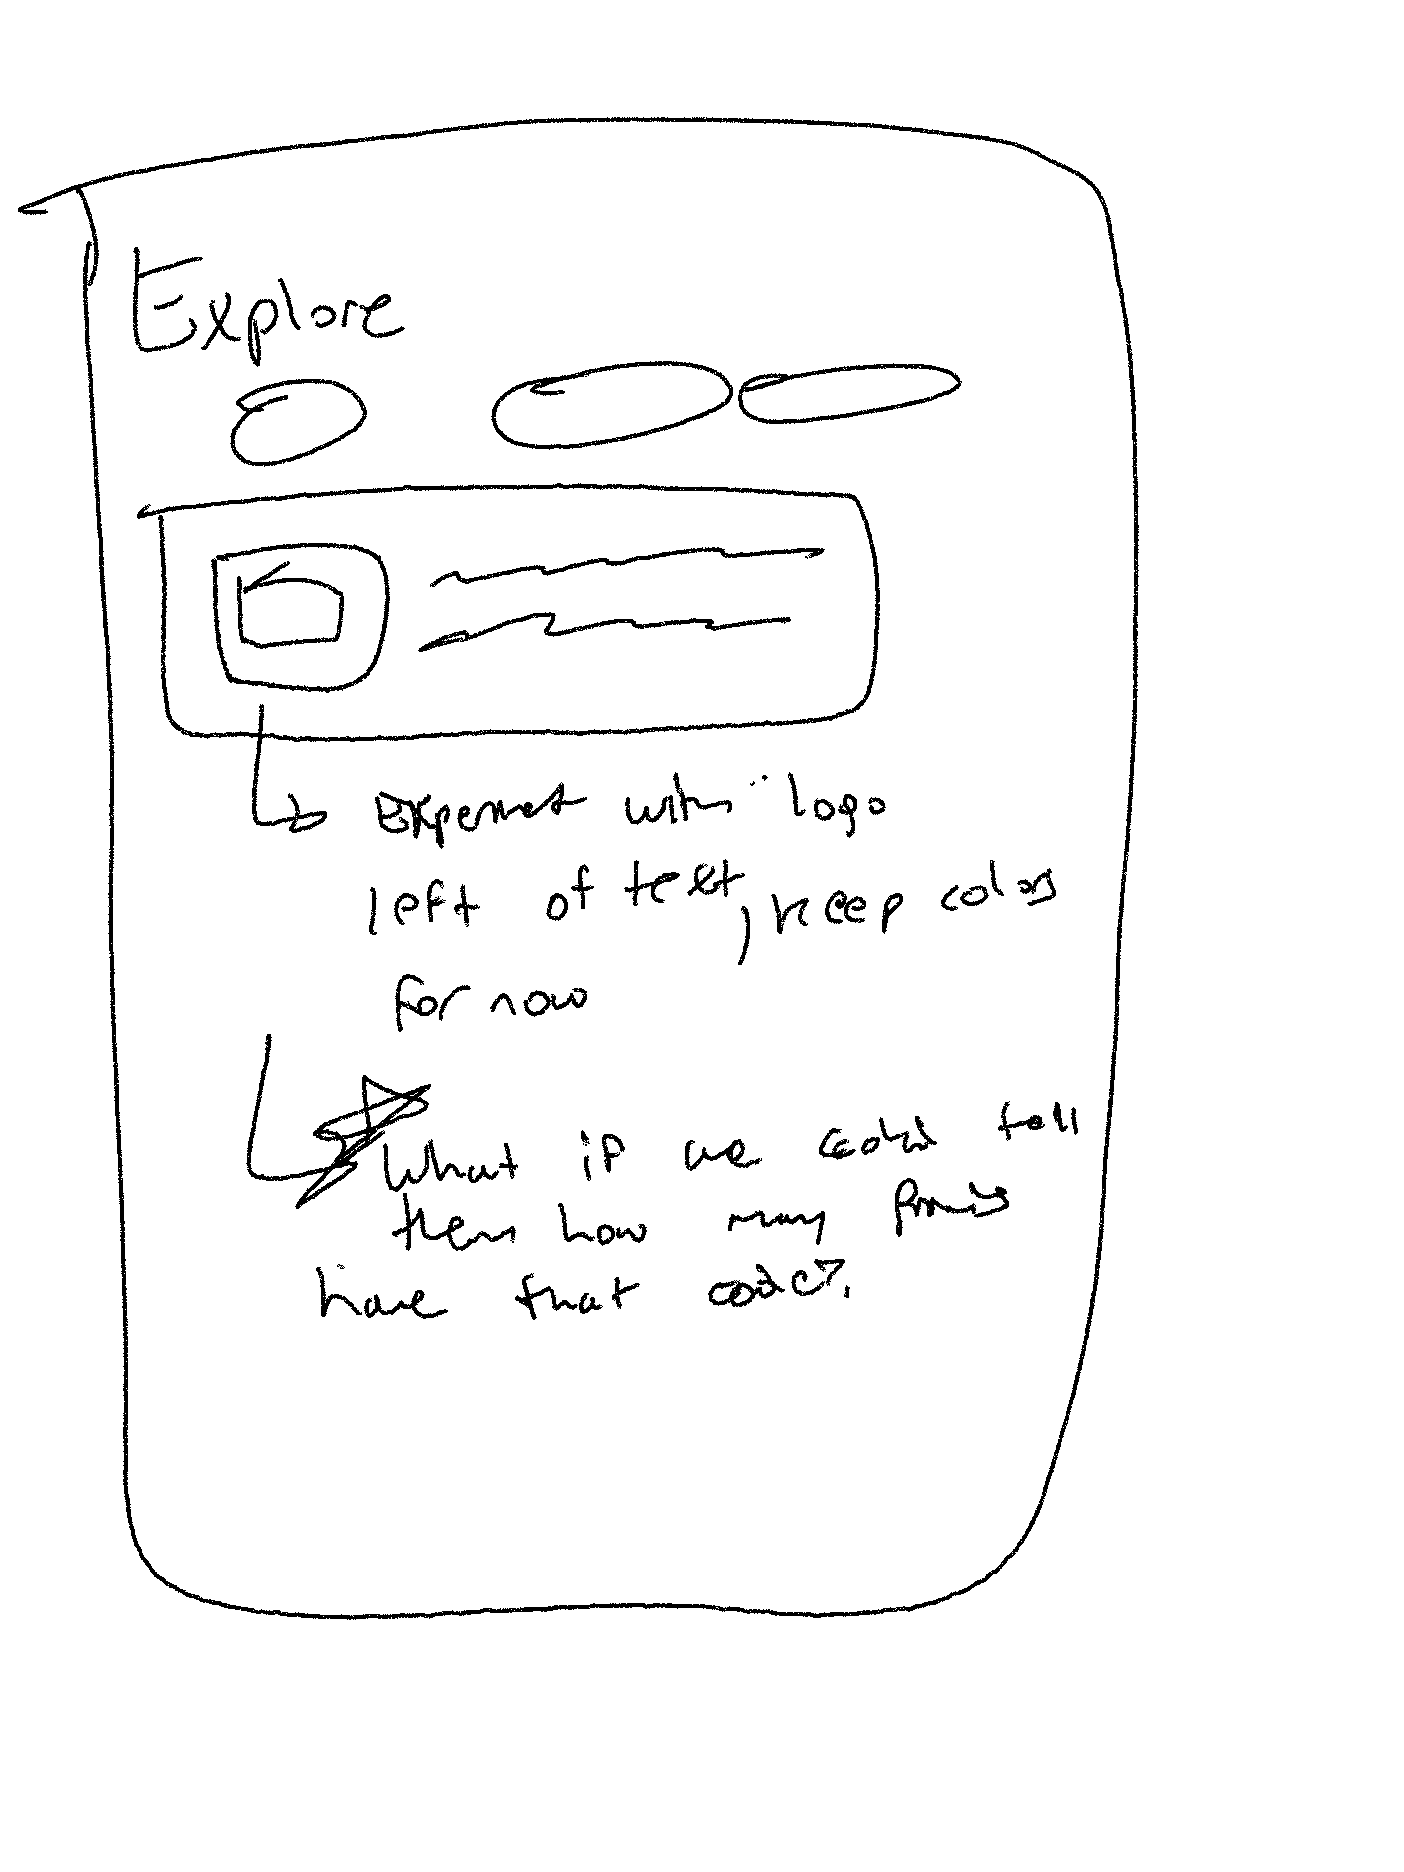 Explore
Experment with logo
left of text, keep colors
for now
What if we could tell
them how many
have that code?